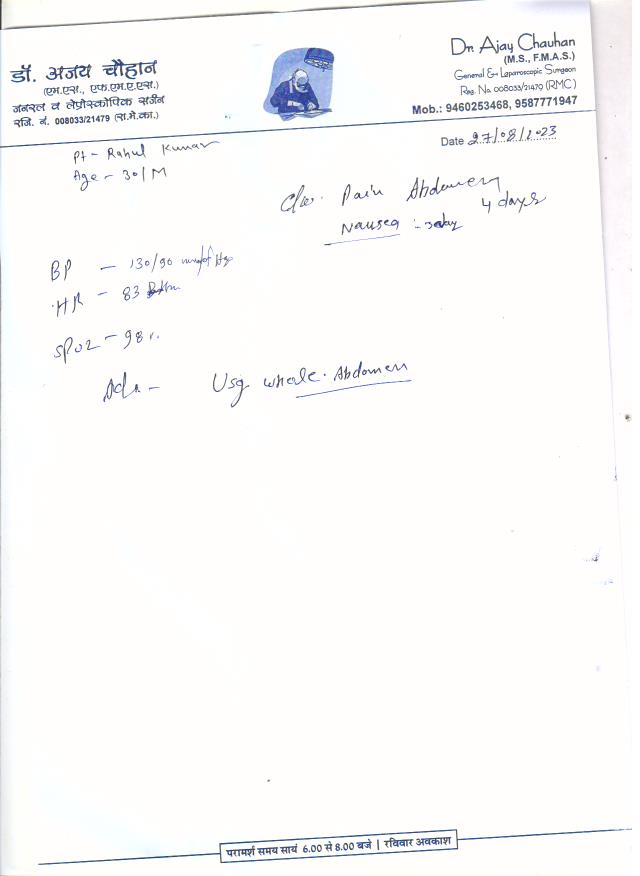 डॉ. अजय चौहान
(एम.एस., एफ.एम.ए.एस.)
जनरल व लेप्रोस्कोपिक सर्जन
रजि. नं. 008033/21479 (रा.मे.का.)
Dr. Ajay Chauhan
(M.S., F.M.A.S.)
General & Laparoscopic Surgeon
Reg. No. 008033/21479 (RMC)
Mob.: 9460253468, 9587771947
Date 27/08/2023
Pt - Rahul Kumar
Age - 30/M
Pain Abdomen
4 days
Nausea
BP - 130/90 mm of Hg
HR - 83
SPO2 - 98
Adv - Usg whole Abdomen
परामर्श समय सायं 6.00 से 8.00 बजे | रविवार अवकाश